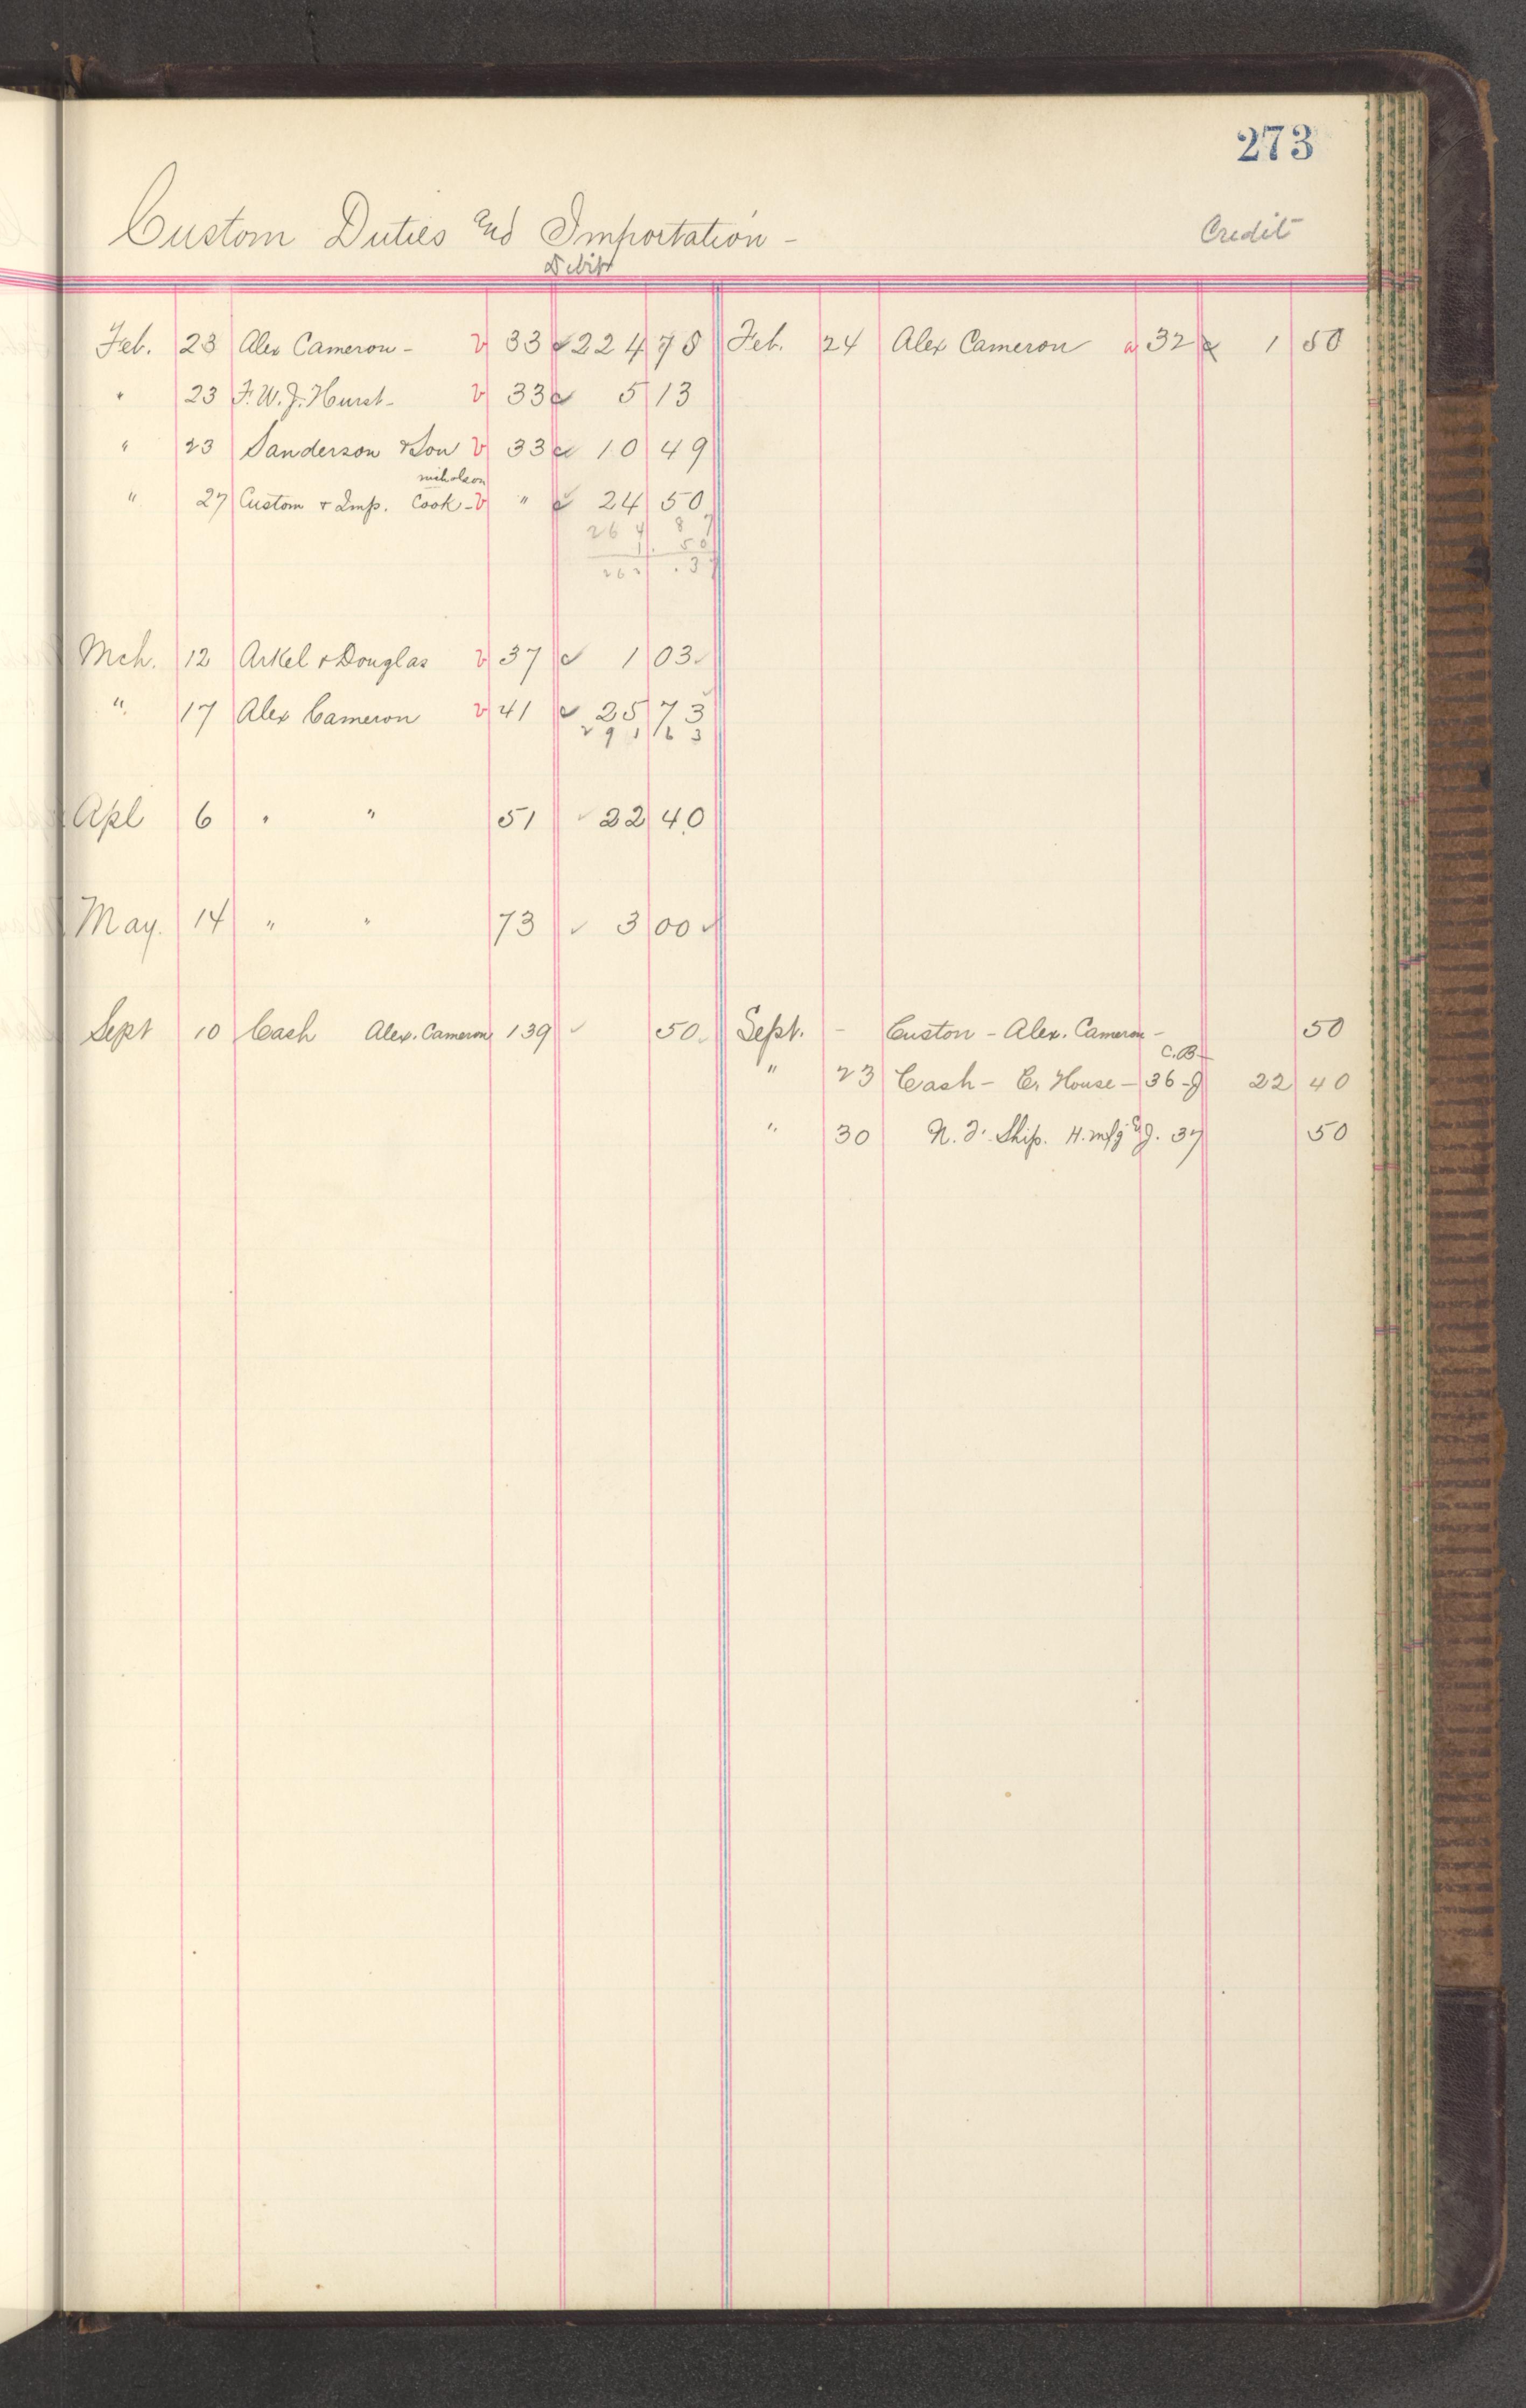 273
Custom Duties and Importation - Credit
Debit
Feb. 23 Alex Cameron - v 33 ✓ 224 75 Feb. 24 Alex Cameron 32 1 50
" 23 F. W. J. Hurst - v 33 ✓ 5 13
" 23 Sanderson & Son v 33 ✓ 10 49
nicholson
" 27 Custom & Imp. Cook - v " ✓ 24 50
264 87
1. 50
263 .37
Mch. 12 Arkel & Douglas v 37 ✓ 1 03 ✓
" 17 Alex Cameron v 41 ✓ 25 73
291 63
Apl 6 " " 51 ✓ 22 40
May. 14 " " 73 ✓ 3 00 ✓
Sept 10 Cash Alex. Cameron 139 ✓ 50 Sept. - Custon - Alex. Cameron - 50
C.B.
" 23 Cash - Cr House - 36 - J 22 40
" 30 Ship. H. mfg J. 37 50